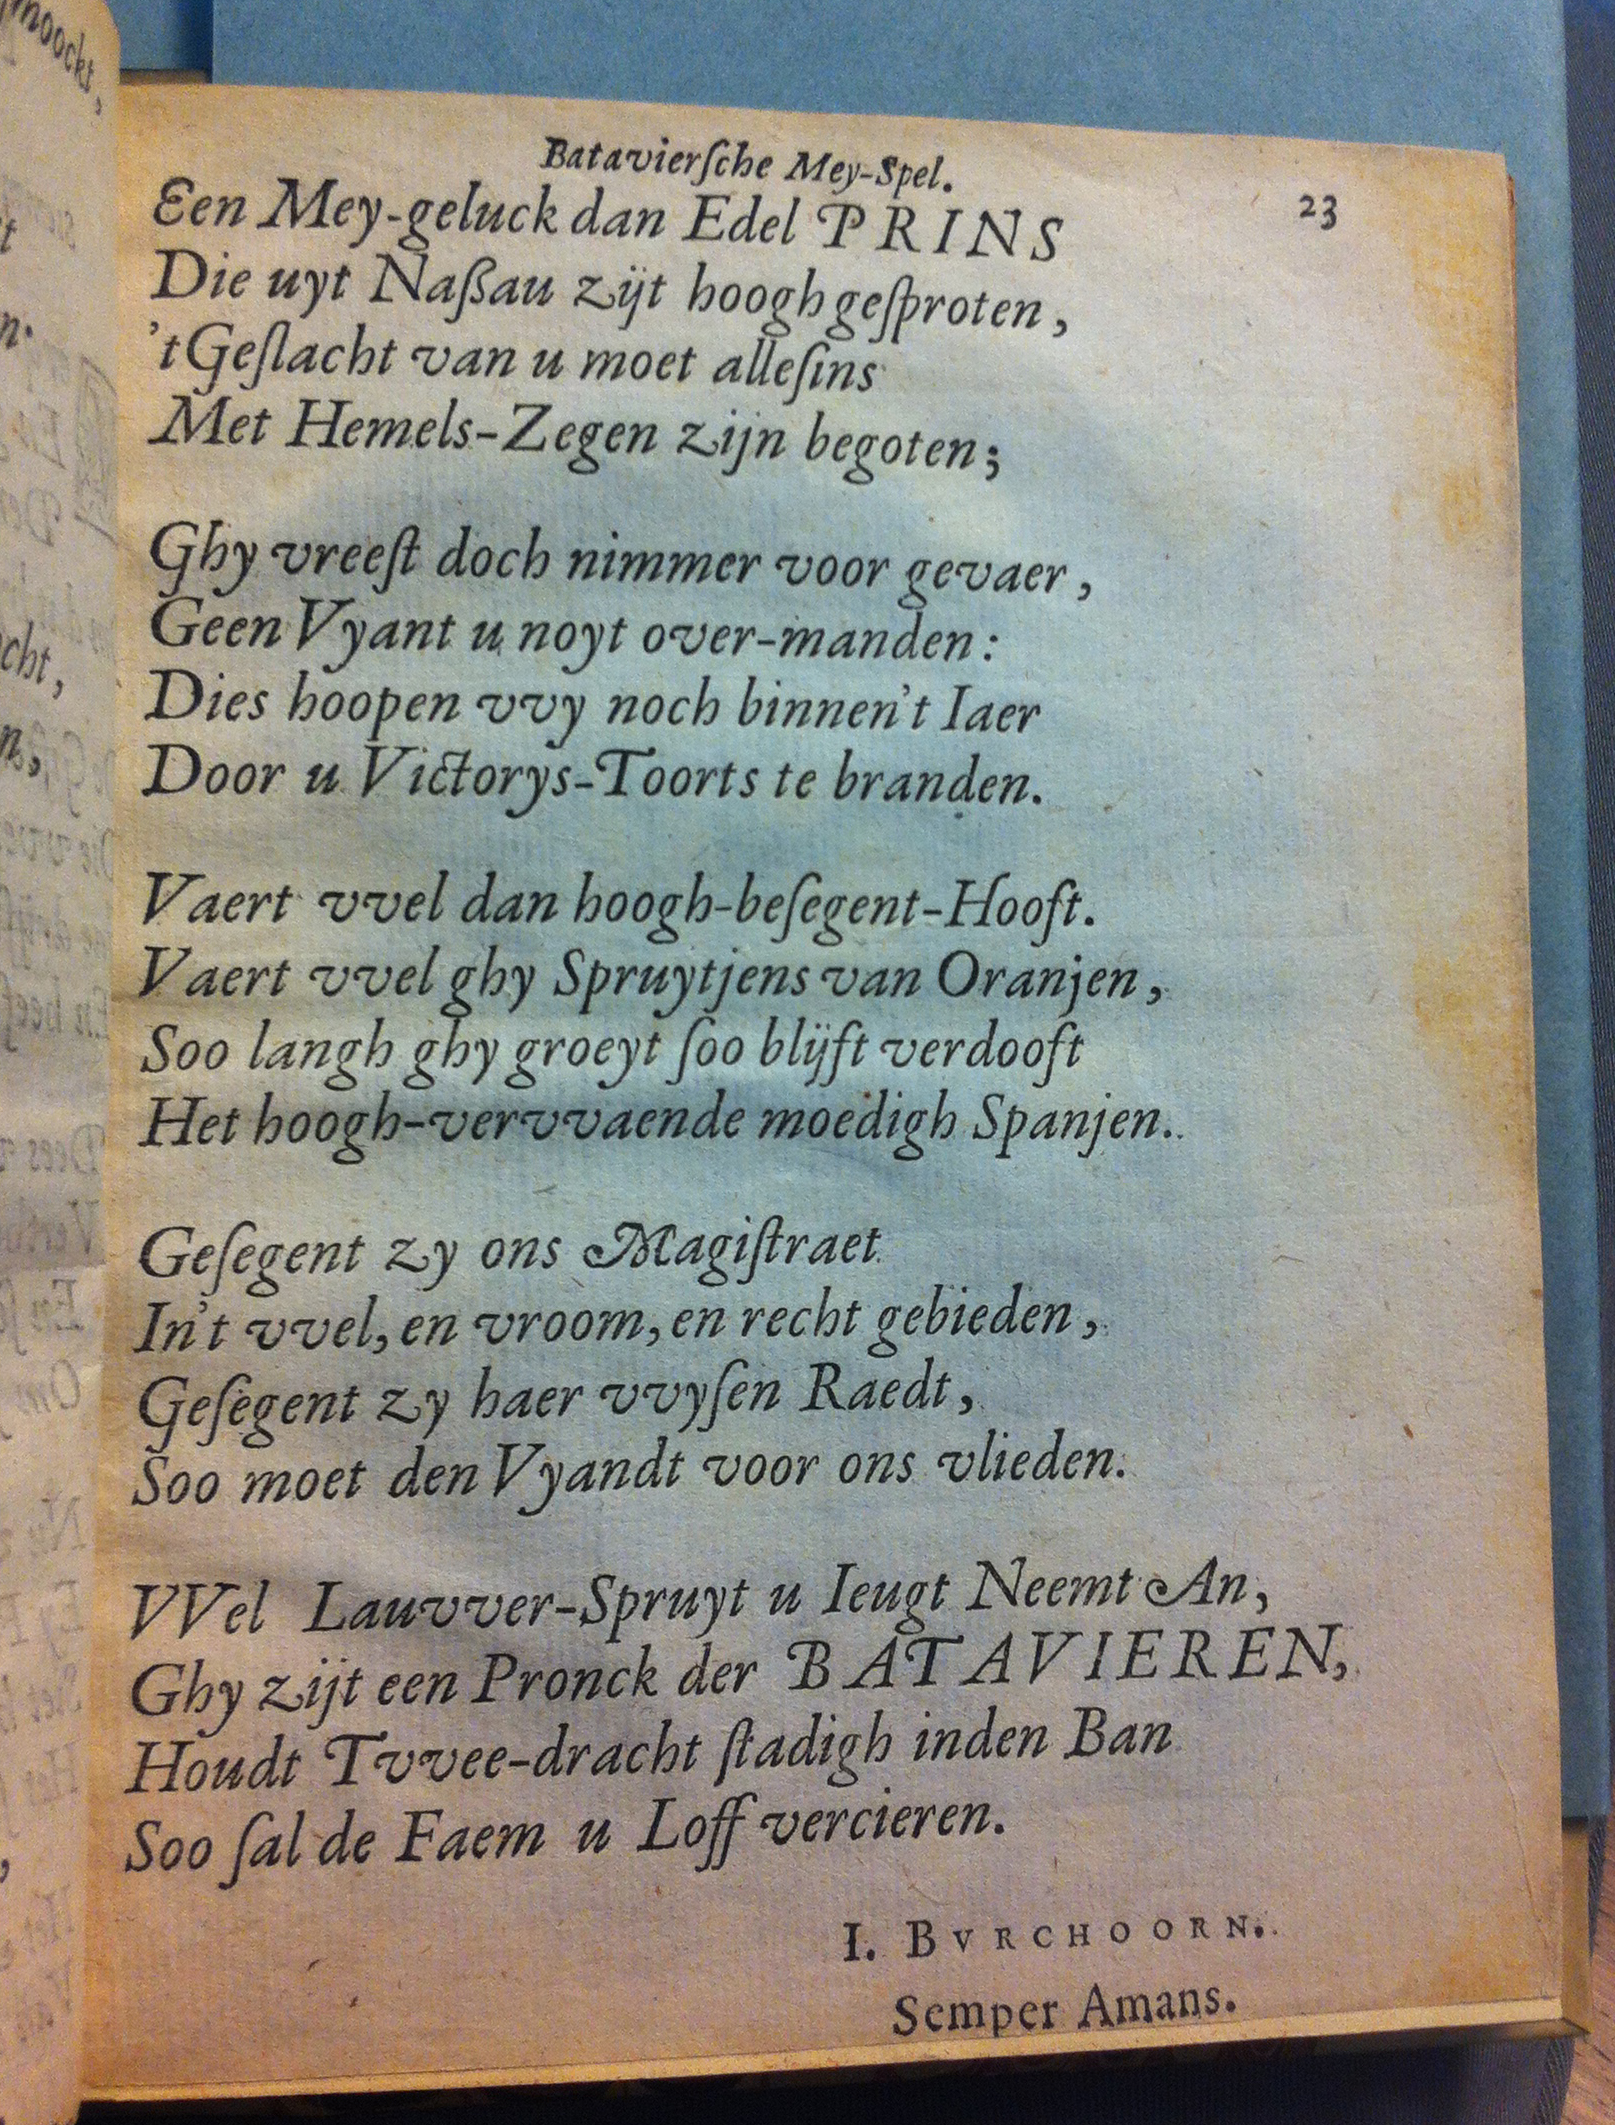 Bataviersche Mey-Spel.
23
Een Mey-geluck dan Edel PRINS
Die uyt Naßau zijt hoogh geſproten,
't Geſlacht van u moet alleſins
Met Hemels-Zegen zijn begoten;
Ghy vreeſt doch nimmer voor gevaer,
Geen Vyant u noyt over-manden:
Dies hoopen vvy noch binnen't Iaer
Door u Victorys-Toorts te branden.
Vaert vvel dan hoogh-beſegent-Hooft.
Vaert vvel ghy Spruytjens van Oranjen,
Soo langh ghy groeyt ſoo blijft verdooft
Het hoogh-vervvaende moedigh Spanjen.
Geſegent zy ons Magiſtraet
In't vvel, en vroom, en recht gebieden,
Geſegent zy haer vvyſen Raedt,
Soo moet den Vyandt voor ons vlieden.
VVel Lauvver-Spruyt u Ieugt Neemt An,
Ghy zijt een Pronck der BATAVIEREN,
Houdt Tvvee-dracht ſtadigh inden Ban
Soo ſal de Faem u Loff vercieren.
I. BVRCHOORN.
Semper Amans.